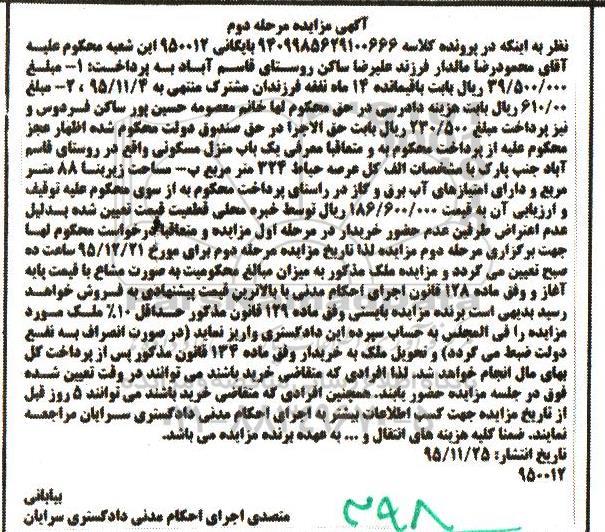 آگهی مزایده مرحله دوم
نظر به اینکه در پرونده کلاسه ۹۴۰۹۹۸۵۶۲۹۱۰۰۶۶۶ بایگانی ۹۵۰۰۱۲ این شعبه محکوم علیه
آقای محمودرضا مالدار فرزند علیرضا ساکن روستای قاسم آباد به پرداخت: ۱- مبلغ
۳۹/۵۰۰/۰۰۰ ریال بابت باقیمانده ۱۴ ماه نفقه فرزندان مشترک منتهی به ۹۵/۱۱/۴ ، ۲- مبلغ
۶۱۰/۰۰ ریال بابت هزینه دادرسی در حق محکوم لها خانم معصومه حسین پور ساکن فردوس و
نیز پرداخت مبلغ ۲۳۰/۵۰۰ ریال بابت حق الاجرا در حق صندوق دولت محکوم شده اظهار عجز
محکوم علیه از پرداخت محکوم به و متعاقبا معرفی یک باب منزل مسکونی واقع در روستای قاسم
آباد جنب پارک با مشخصات الف کل عرصه حیاط ۳۲۴ متر مربع ب- مساحت زیربنا ۸۸ متر
مربع و دارای امتیازهای آب برق و گاز در راستای پرداخت محکوم به از سوی محکوم علیه توقیف
و ارزیابی آن به قیمت ۱۸۶/۶۰۰/۰۰۰ ریال توسط خبره محلی قطعیت قیمت تعیین شده بدلیل
عدم اعتراض طرفین عدم حضور خریدار در مرحله اول مزایده و متعاقبا درخواست محکوم لها
جهت برگزاری مرحله دوم مزایده لذا تاریخ مزایده مرحله دوم برای مورخ ۹۵/۱۲/۲۱ ساعت ده
صبح تعیین می گردد و مزایده ملک مذکور به میزان مبالغ محکومیت به صورت مشاع با قیمت پایه
آغاز و وفق ماده ۱۲۸ قانون اجرای احکام مدنی با بالاترین قیمت پیشنهادی به فروش خواهد
رسید بدیهی است برنده مزایده بایستی وفق ماده ۱۲۹ قانون مذکور حداقل ۱۰٪ ملک مورد
مزایده را فی المجلس به حساب سپرده این دادگستری واریز نماید (در صورت انصراف به نفع
دولت ضبط می گردد) و تحویل ملک به خریدار وفق ماده ۱۳۴ قانون مذکور پس از پرداخت کل
بهای مال انجام خواهد شد، لذا افرادی که متقاضی خرید باشند می توانند در وقت تعیین شده
فوق در جلسه مزایده حضور یابند. همچنین افرادی که متقاضی خرید باشند می توانند ۵ روز قبل
از تاریخ مزایده جهت کسب اطلاعات بیشتر به اجرای احکام مدنی دادگستری سرایان مراجعه
نمایند. ضمنا کلیه هزینه های انتقال و ... به عهده برنده مزایده می باشد.
تاریخ انتشار: ۹۵/۱۱/۲۵
۹۵۰۰۱۲
بیابانی
متصدی اجرای احکام مدنی دادگستری سرایان
۲۹۸